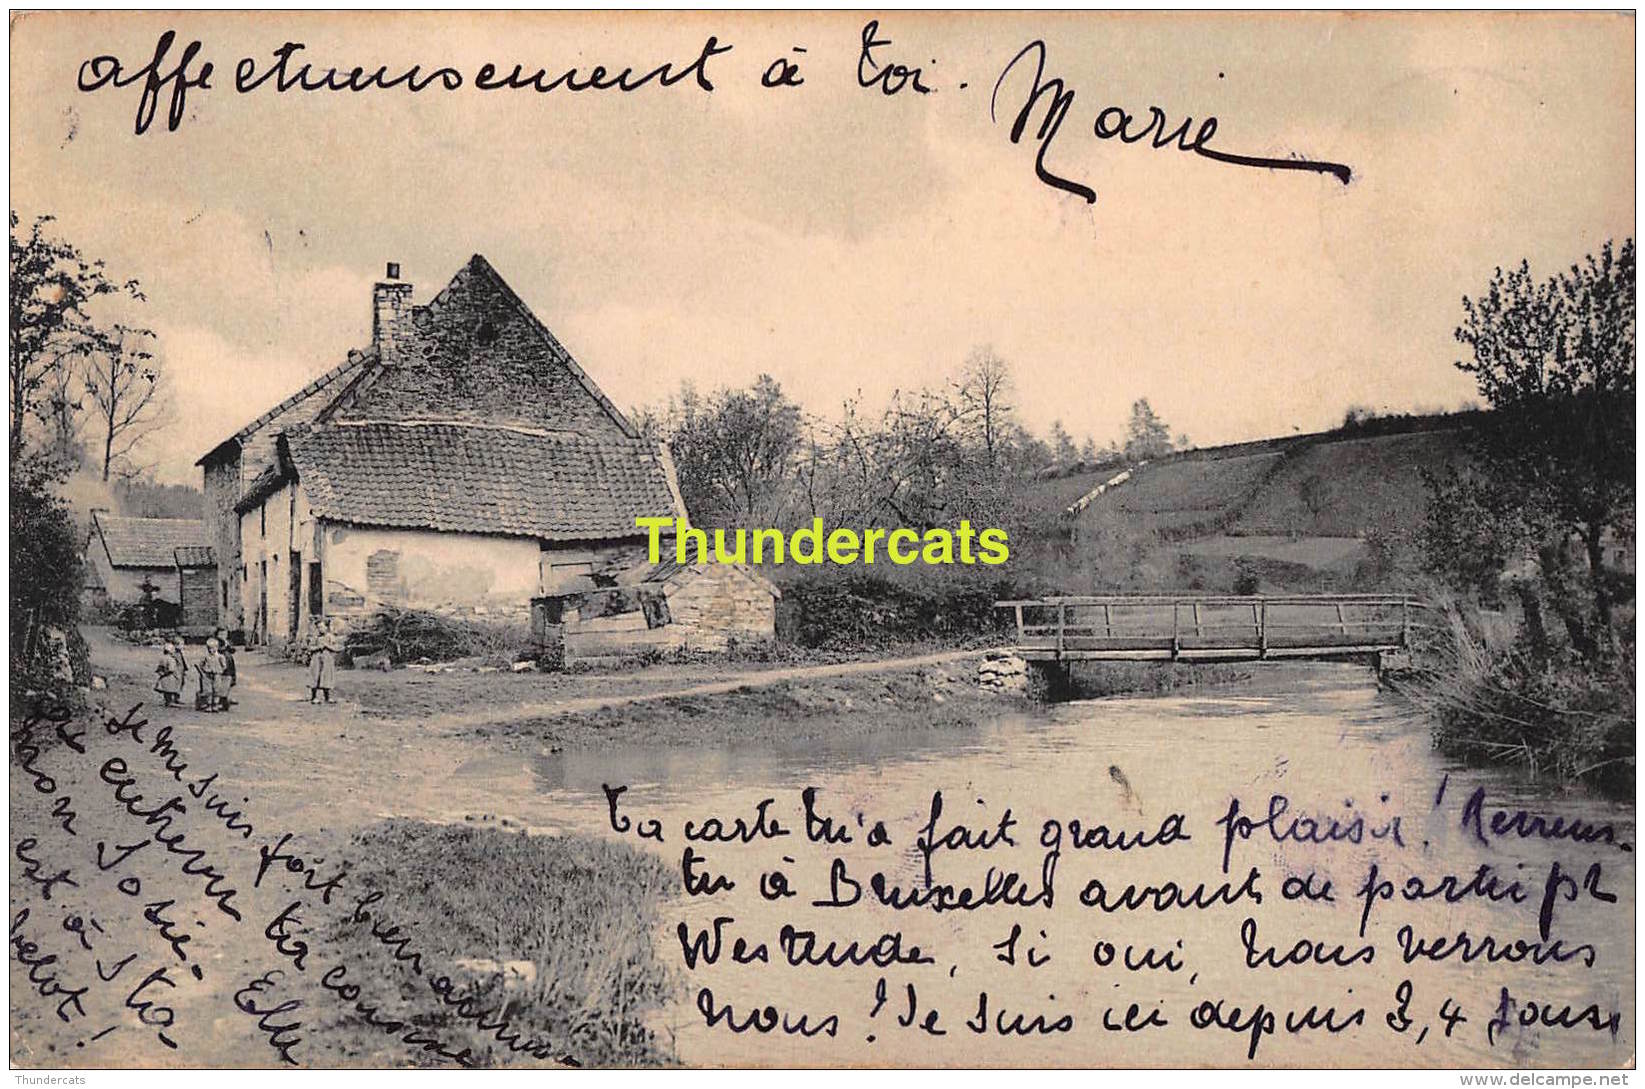 affectueusement à toi. Marie
Thundercats
Ta carte tu'a fait grand plaisir! Reviens-
tu à Bruxelles avant de partir pr
Westende, si oui, nous verrons
nous! Je suis ici depuis 3, 4 jours
Je me suis fort bien amusé
et entrevu ta cousine
mon Josié. Elle
est à
Thundercats
delcampe.net